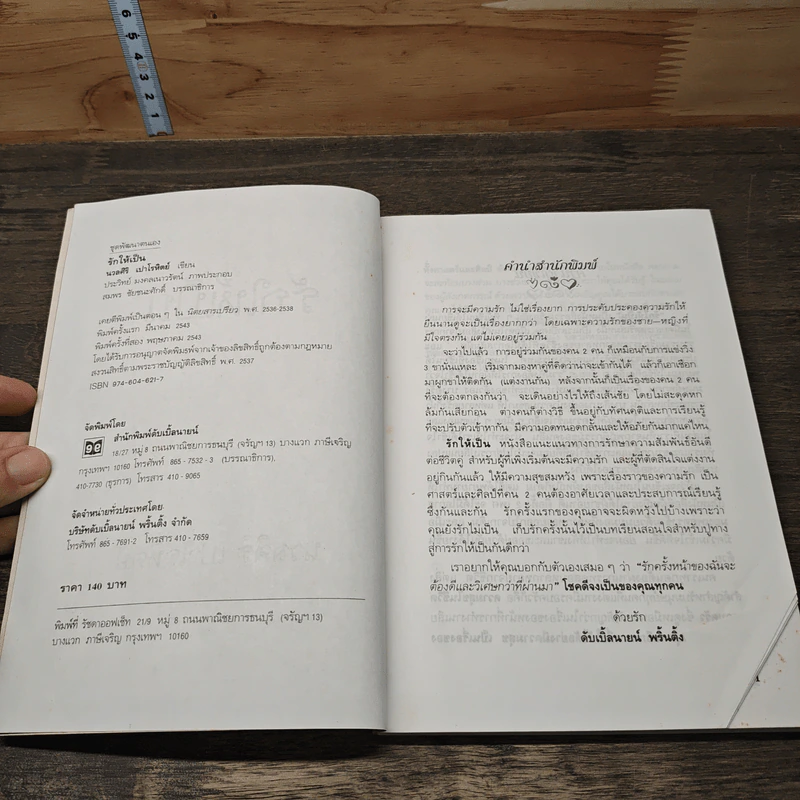 6
5
4
3
2
1
ชุดพัฒนาตนเอง
รักให้เป็น
นวลศิริ เปาโรหิตย์ เขียน
ประวิทย์ มงคลเนาวรัตน์ ภาพประกอบ
สมพร ชัยชนะศักดิ์ บรรณาธิการ
เคยตีพิมพ์เป็นตอน ๆ ใน นิตยสารเปรียว พ.ศ. 2536-2538
พิมพ์ครั้งแรก มีนาคม 2543
พิมพ์ครั้งที่สอง พฤษภาคม 2543
โดยได้รับการอนุญาตจัดพิมพ์จากเจ้าของลิขสิทธิ์ถูกต้องตามกฎหมาย
สงวนสิทธิ์ตามพระราชบัญญัติลิขสิทธิ์ พ.ศ. 2537
ISBN 974-604-621-7
จัดพิมพ์โดย
สำนักพิมพ์ดับเบิ้ลนายน์
18/27 หมู่ 8 ถนนพาณิชยการธนบุรี (จรัญฯ 13) บางแวก ภาษีเจริญ
กรุงเทพฯ 10160 โทรศัพท์ 865-7532-3 (บรรณาธิการ),
410-7730 (ธุรการ) โทรสาร 410-9065
จัดจำหน่ายทั่วประเทศโดย
บริษัทดับเบิ้ลนายน์ พริ้นติ้ง จำกัด
โทรศัพท์ 865-7691-2 โทรสาร 410-7659
ราคา 140 บาท
พิมพ์ที่ รัชดาออฟเซ็ท 21/9 หมู่ 8 ถนนพาณิชยการธนบุรี (จรัญฯ 13)
บางแวก ภาษีเจริญ กรุงเทพฯ 10160
คำนำสำนักพิมพ์
การจะมีความรัก ไม่ใช่เรื่องยาก การประคับประคองความรักให้
ยืนนานดูจะเป็นเรื่องยากกว่า โดยเฉพาะความรักของชาย–หญิงที่
มีใจตรงกัน แต่ไม่เคยอยู่ร่วมกัน
จะว่าไปแล้ว การอยู่ร่วมกันของคน 2 คน ก็เหมือนกับการแข่งวิ่ง
3 ขานั่นแหละ เริ่มจากมองหาคู่ที่คิดว่าน่าจะเข้ากันได้ แล้วก็เอาเชือก
มาผูกขาให้ติดกัน (แต่งงานกัน) หลังจากนั้นก็เป็นเรื่องของคน 2 คน
ที่จะต้องตกลงกันว่า จะเดินอย่างไรให้ถึงเส้นชัย โดยไม่สะดุดหก
ล้มกันเสียก่อน ต่างคนก็ต่างวิธี ขึ้นอยู่กับทัศนคติและการเรียนรู้
ที่จะปรับตัวเข้าหากัน มีความอดทนอดกลั้นและให้อภัยกันมากแค่ไหน
รักให้เป็น หนังสือแนะแนวทางการรักษาความสัมพันธ์อันดี
ต่อชีวิตคู่ สำหรับผู้ที่เพิ่งเริ่มต้นจะมีความรัก และผู้ที่ตัดสินใจแต่งงาน
อยู่กินกันแล้ว ให้มีความสุขสมหวัง เพราะเรื่องราวของความรัก เป็น
ศาสตร์และศิลป์ที่คน 2 คนต้องอาศัยเวลาและประสบการณ์เรียนรู้
ซึ่งกันและกัน รักครั้งแรกของคุณอาจจะผิดหวังไปบ้างเพราะว่า
คุณยังรักไม่เป็น เก็บรักครั้งนั้นไว้เป็นบทเรียนสอนใจสำหรับปูทาง
สู่การรักให้เป็นกันดีกว่า
เราอยากให้คุณบอกกับตัวเองเสมอ ๆ ว่า “รักครั้งหน้าของฉันจะ
ต้องดีและวิเศษกว่าที่ผ่านมา” โชคดีจงเป็นของคุณทุกคน
ด้วยรัก
ดับเบิ้ลนายน์ พริ้นติ้ง